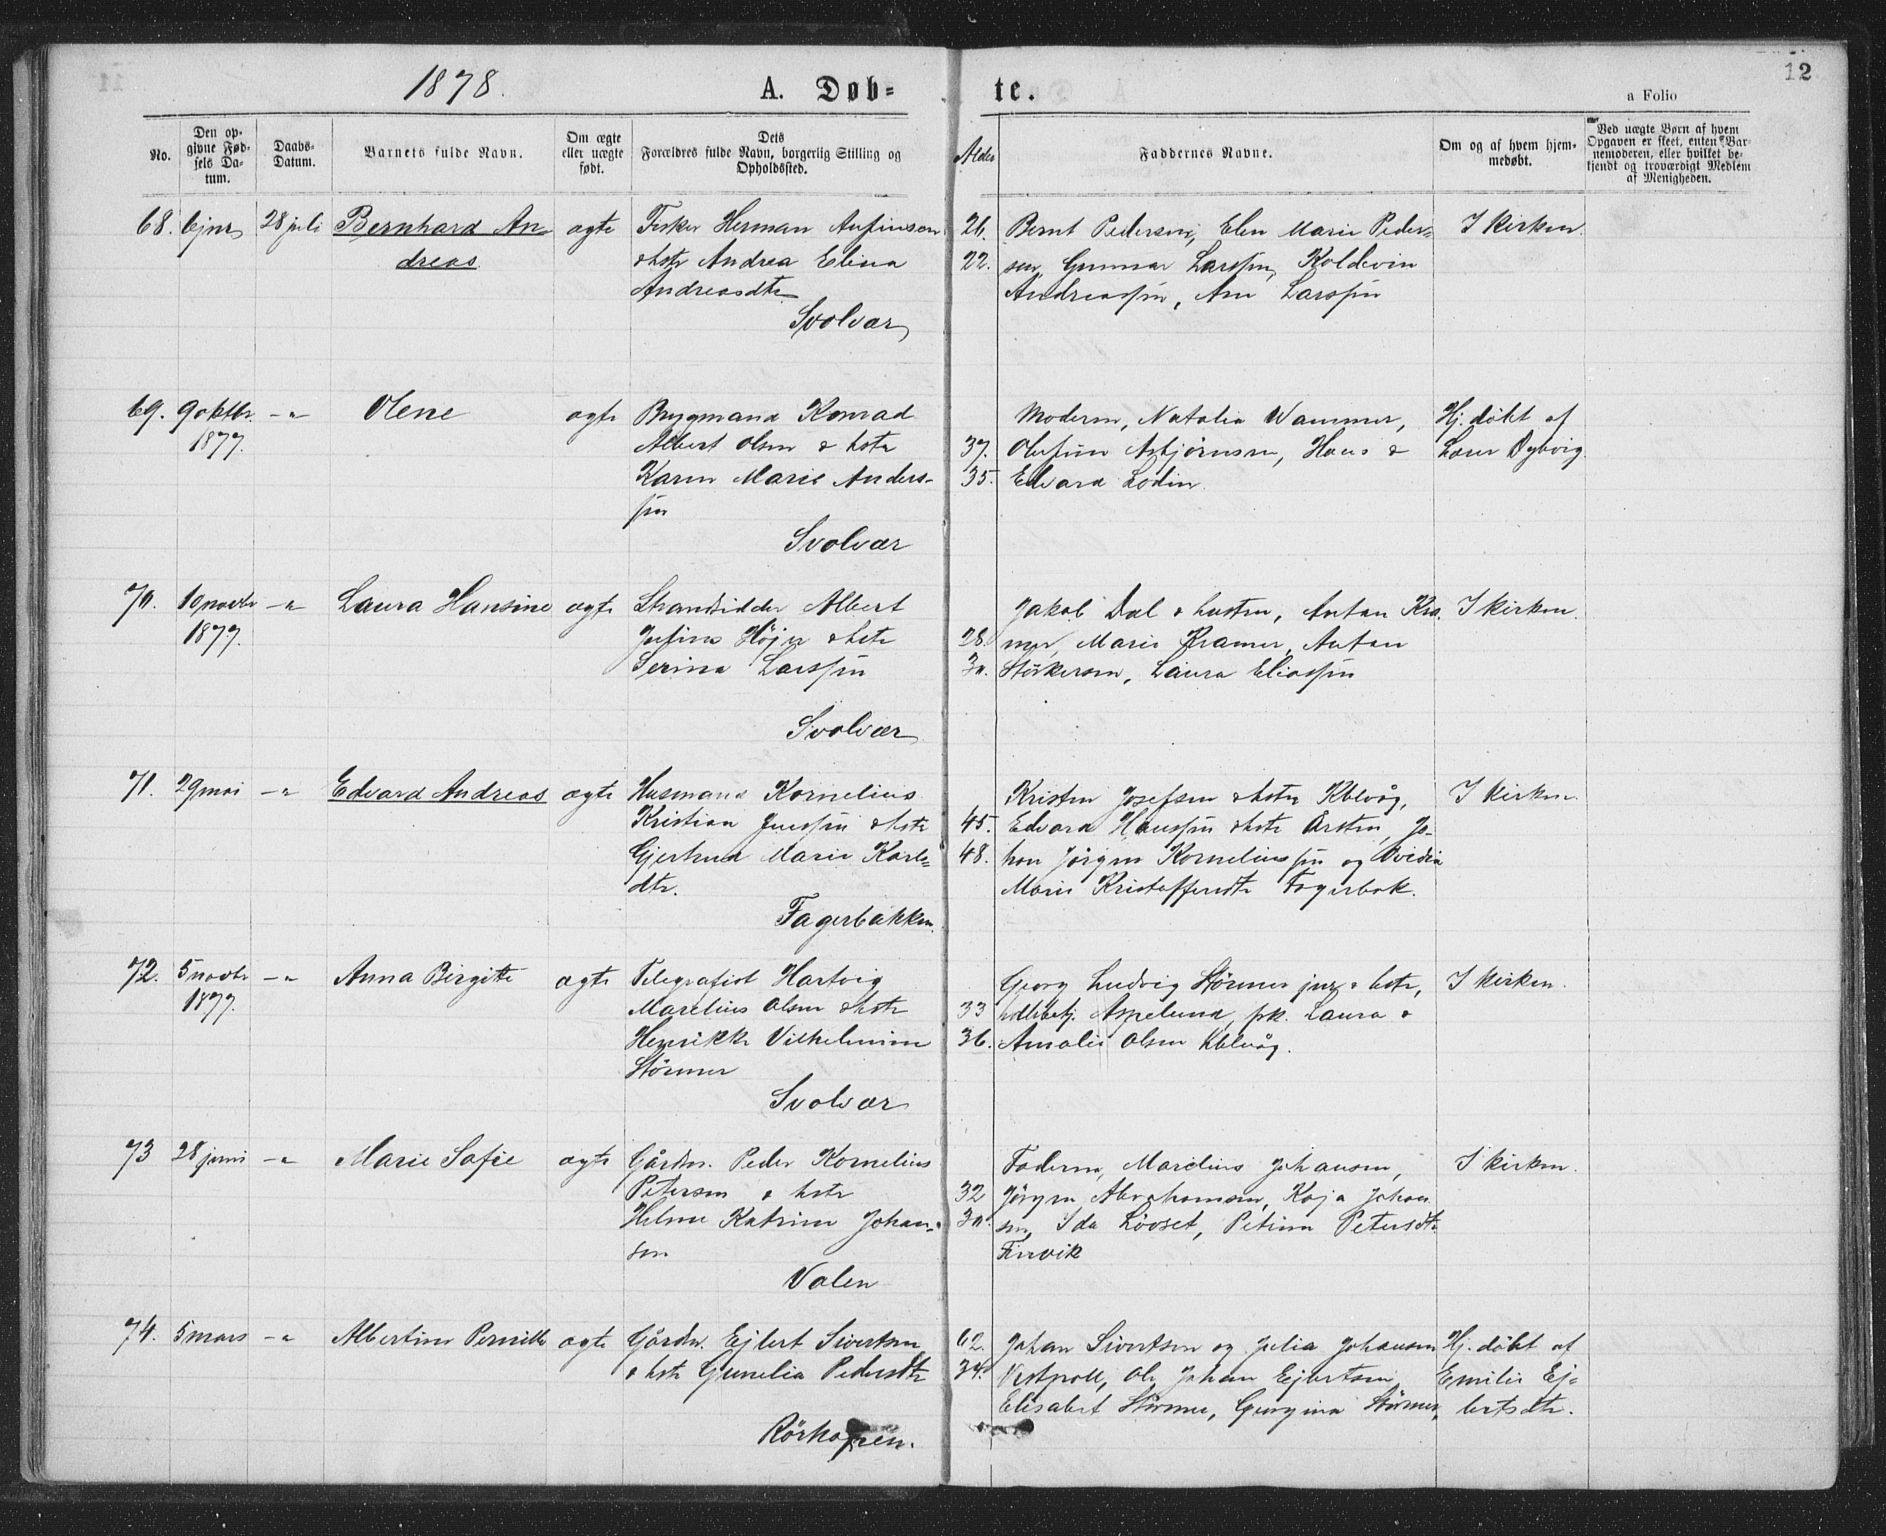 1878.
A. Døb-
te.
12
a Folio
No.
Den op-
givne Fød-
sels Da-
tum.
Daabs-
Datum.
Barnets fulde Navn.
Om ægte
eller uægte
født.
Dets
Forældres fulde Navn, borgerlig Stilling og
Opholdssted.
Alder
Faddernes Navne.
Om og af hvem hjem-
medøbt.
Ved uægte Børn af hvem
Opgaven er skeet, enten Bar-
nemoderen, eller hvilket be-
kjendt og troværdigt Medlem
af Menigheden.
68.
28 juli
Bernhard An-
dreas
ægte
Fisker Herman Anfinsen
& hstr Andrea Elina
Andreasdtr
Svolvær
26.
22.
Bernt Pedersen, Elen Marie Peder-
sen, Gunnar Larssen, Koldevin
Andreassen, Ane Larssen
I kirken.
69.
9 oktbr.
1877.
-"-
Olene
ægte
Brygmand Konrad
Albert Olsen & hstr
Karen Marie Anders-
sen
Svolvær
37.
35.
Moderen, Natalia Wammer,
Asbjørnsen, Hans &
Edvard Lodin
Hj. døbt af
Dybvig
70.
10 novbr
1877.
-"-
Laura Hansine
ægte
Strandsidder Albert
Høier & hstr
Serina Larssen
Svolvær
28.
30.
Jakob Dal & hustru, Anton Kra-
mer, Marie Kramer, Anton
Størkersen, Laura Eliassen
I kirken.
71.
29 mai
-"-
Edvard Andreas
ægte
Husmand Kornelius
Kristian Jenssen & hstr
Gjertrud Marie Karls-
dtr.
Fagerbakken.
45.
48.
Kristen Josefsen & hstr Kblvåg,
Edvard Hanssen & hstr Ørsten, Jo-
han Jørgen Korneliussen og Ovidia
Marie Kristoffersdtr Fagerbak.
I kirken.
72.
5 novbr
1877.
-"-
Anna Birgitte
ægte
Telegrafist Hartvig
Marelius Olsen & hstr
Henrikke Vilhelmine
Størmer
Svolvær
33
36.
Georg Ludvig Størmer jnr & hstr,
Aspelund, frk. Laura &
Amalie Olsen Kblvåg.
I kirken.
73
28 juni
-"-
Marie Sofie
ægte
Gårdm. Peder Kornelius
Petersen & hstr
Katrine Johan-
sen
Valen
32
30.
Faderen, Marelius Johansen,
Jørgen Abrahamsen, Kaja Johan-
sen, Ida Løvset, Petrina Petersdtr
Finvik
I kirken.
74.
5 mars
-"-
Albertine Pernille
ægte
Gårdm. Ejlert Sivertsen
& hstr Gunelia Pedersdtr
Rørhopen.
62.
34.
Johan Sivertsen og Julia Johansen
Vestpoll, Ole Johan Ejlertsen,
Elisabet Størmer, Georgina Størmer,
Hj. døbt af
Emilie Ej-
lertsdtr.